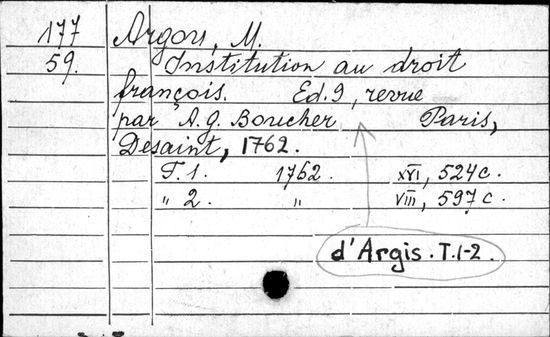 177 Argou, M.
59. Institution au droit
françois. Ed. 9, revue
par A. G. Boucher Paris,
Desaint, 1762.
T. 1. 1762. XVI, 524 c.
„ 2. „ VIII, 597 c.
d'Argis. T. 1-2.